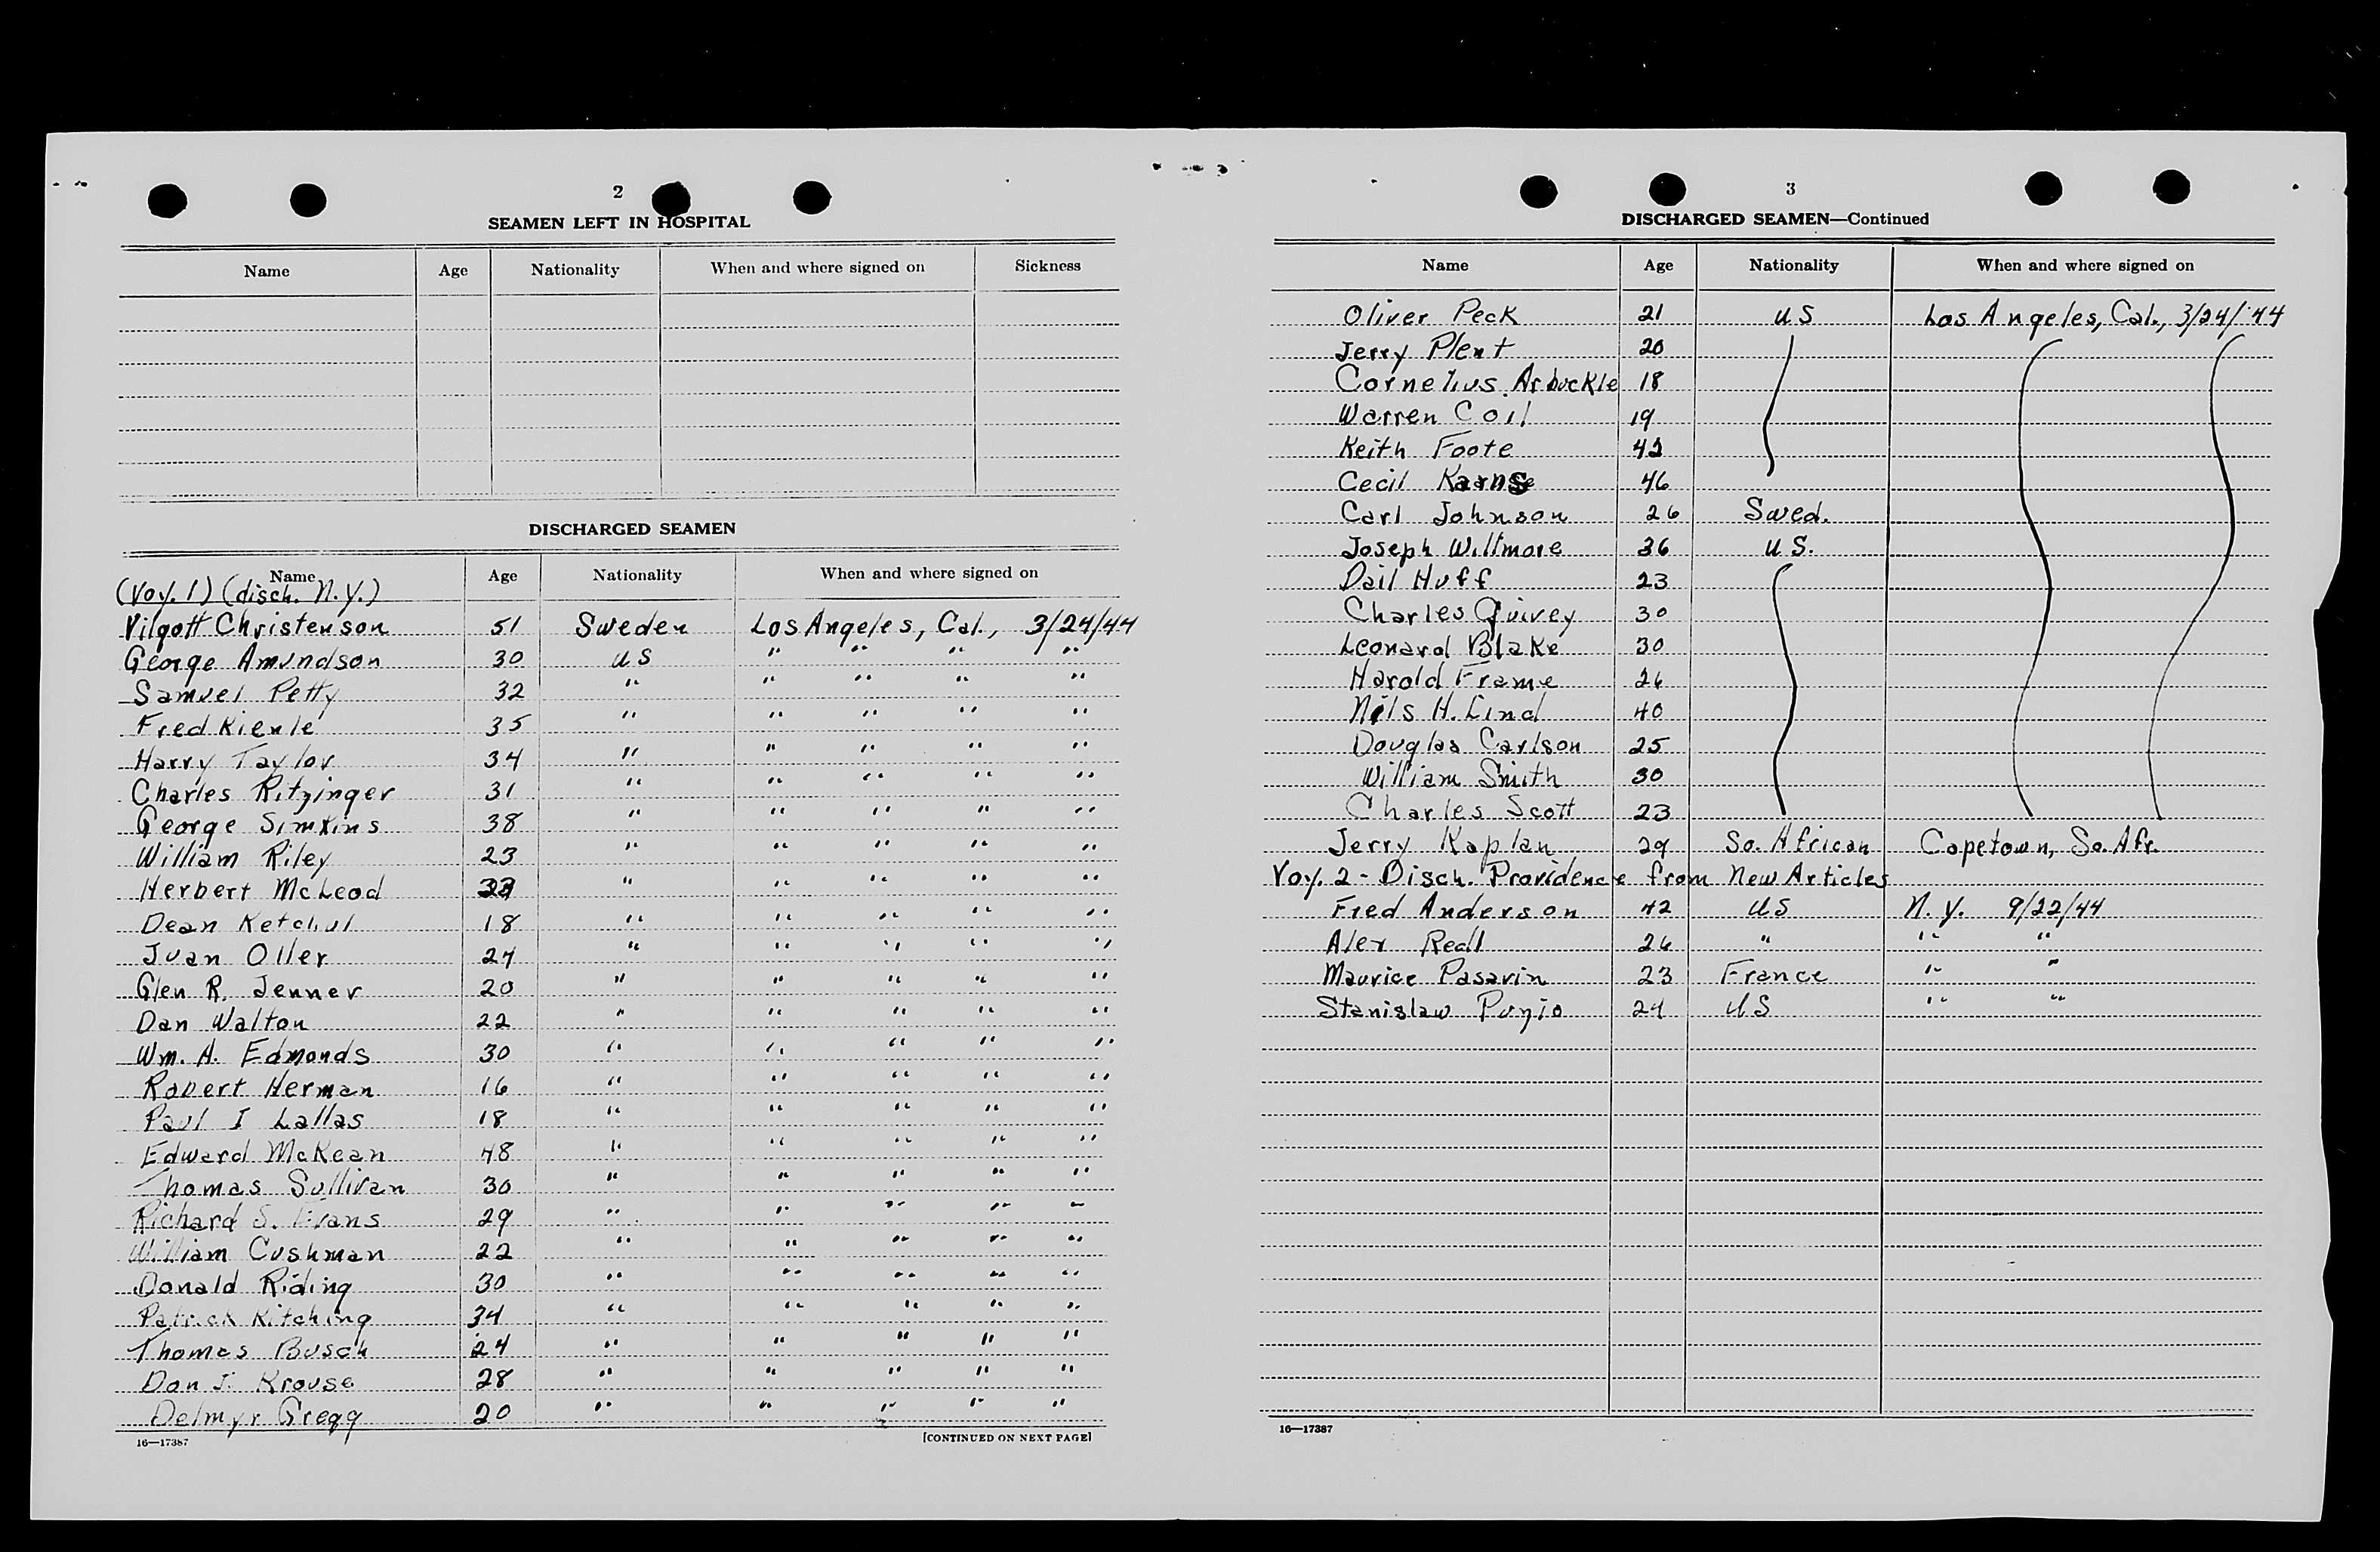 2
SEAMEN LEFT IN HOSPITAL
Name Age Nationality When and where signed on Sickness
DISCHARGED SEAMEN
Name Age Nationality When and where signed on
(Voy. 1) (disch. N.Y.)
Vilgott Christenson 51 Sweden Los Angeles, Cal., 3/24/44
George Amundson 30 US " " " "
Samuel Petty 32 " " " " "
Fred Kienle 35 " " " " "
Harry Taylor 34 " " " " "
Charles Ritzinger 31 " " " " "
George Simkins 38 " " " " "
William Riley 23 " " " " "
Herbert McLeod " " " " "
Dean 18 " " " " "
Juan Oller 24 " " " " "
Glen R. Jenner 20 " " " " "
Dan Walton 22 " " " " "
Wm. A. Edmonds 30 " " " " "
Robert Herman 16 " " " " "
Paul I Lallas 18 " " " " "
Edward McKean 48 " " " " "
Thomas Sullivan 30 " " " " "
Richard S. Evans 29 " " " " "
William Cushman 22 " " " " "
Donald Riding 30 " " " " "
Patrick Kitching 34 " " " " "
Thomas Busch 24 " " " " "
Dan J. Krouse 28 " " " " "
Delmyr Gregg 20 " " " " "
16—17387 [CONTINUED ON NEXT PAGE]
3
DISCHARGED SEAMEN—Continued
Name Age Nationality When and where signed on
Oliver Peck 21 US Los Angeles, Cal., 3/24/'44
Jerry Plent 20
Cornelius Arbuckle 18
Warren Coil 19
Keith Foote 42
Cecil 46
Carl Johnson 26 Swed.
Joseph Willmore 36 US.
Dail Huff 23
Charles Quivey 30
Leonard Blake 30
Harold Frame 26
Nils H. Lind 40
Douglas Carlson 25
William Smith 30
Charles Scott 23
Jerry Kaplan 29 So. African Capetown, So. Afr.
Voy. 2 - Disch. Providence from New Articles
Fred Anderson 42 US N.Y. 9/22/44
Alex Redl 26 " " "
Maurice Pasavin 23 France " "
Stanislaw Punzio 24 US " "
16—17387